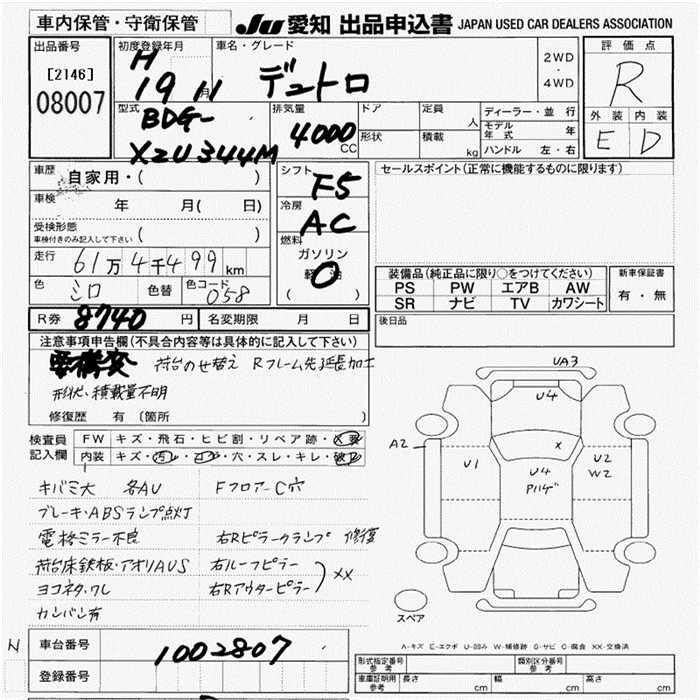 車内保管・守衛保管
JU 愛知 出品申込書 JAPAN USED CAR DEALERS ASSOCIATION
出品番号
[2146]
08007
初度登録年月
H
19 月 11
車名・グレード
デュトロ
2WD
・
4WD
評価点
R
外装 内装
E D
型式
BDG-
XZU344M
排気量
4000
CC
ドア
形状
定員
人
積載
kg
ディーラー・並行
モデル年式 年
ハンドル 左・右
車歴
自家用・( )
車検
年 月( 日)
受検形態
車検付きのみ記入して下さい ( )
走行
61万4千499km
色
シロ
色替
色コード
058
シフト
F5
冷房
AC
燃料
ガソリン
軽油
( )
セールスポイント(正常に機能するものに限ります)
装備品(純正品に限り○をつけてください)
PS PW エアB AW
SR ナビ TV カワシート
新車保証書
有・無
R券 8740 円
名変期限 月 日
後日品
注意事項申告欄(不具合内容等は具体的に記入して下さい)
荷台のせ替え Rフレーム先延長加工
形状、積載量不明
修復歴 有 〔箇所 〕
検査員
記入欄
FW キズ・飛石・ヒビ割・リペア跡・
内装 キズ・汚レ・コゲ・穴・スレ・キレ・
キバミ大 各AU Fフロアー C穴
ブレーキ・ABSランプ点灯
電格ミラー不良 右Rピラークランプ 修復
荷台床鉄板・アオリAUS 右ルーフピラー
ヨコネタ、ワレ 右Rアウターピラー XX
カンバン有
UA3
U4
A2
U1
X
U4
Pハゲ
U2
W2
スペア
A-キズ E-エクボ U-凹み W-補修跡 S-サビ C-腐食 XX-交換済
N
車台番号
1002807
登録番号
形式指定番号
参考
類別区分番号
参考
車庫証明用
参考
長さ cm 幅 cm 高さ cm